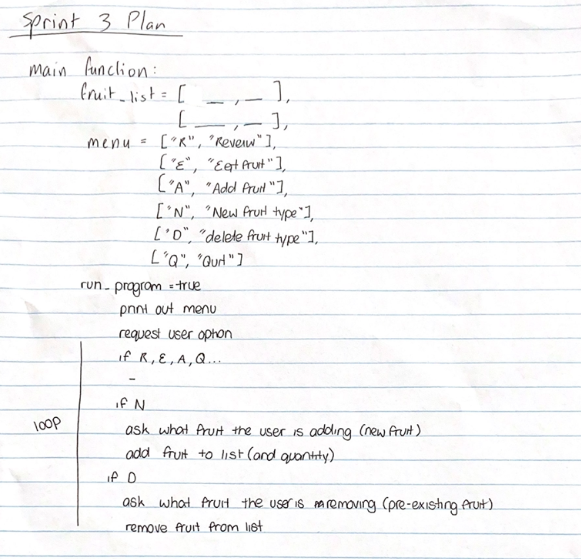 Sprint 3 Plan
main function:
fruit_list = [ __ , __ ],
[ __ , __ ],
menu = ["R", "Review"],
["E", "Eat fruit"],
["A", "Add fruit"],
["N", "New fruit type"],
["D", "delete fruit type"],
["Q", "Quit"]
run_program = true
print out menu
request user option
if R, E, A, Q...
-
if N
loop
ask what fruit the user is adding (new fruit)
add fruit to list (and quantity)
if D
ask what fruit the user is removing (pre-existing fruit)
remove fruit from list